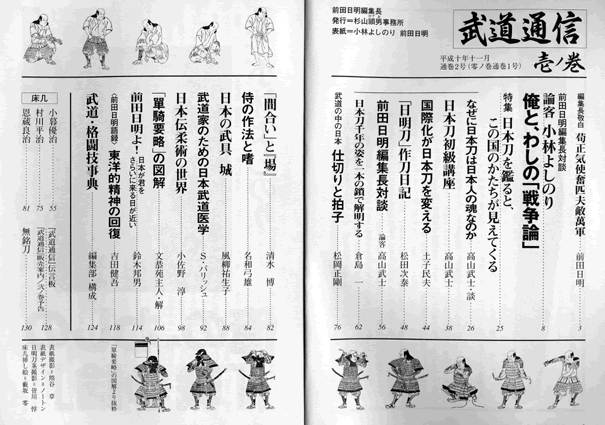 前田日明編集長
発行＝杉山頴男事務所
表紙＝小林よしのり 前田日明
武道通信
平成十年十一月
通巻2号(零ノ巻通巻1号)
壱ノ巻
編集長敬白 苟正気使奮匹夫敵萬軍 前田日明 3
前田日明編集長対談
論客 小林よしのり
俺と、わしの「戦争論」 8
特集 日本刀を鑑ると、
この国のかたちが見えてくる 25
なぜに日本刀は日本人の魂なのか 高山武士・談 26
日本刀初級講座 高山武士 38
国際化が日本刀を変える 土子民夫 44
「日明刀」作刀日記 松田次泰 48
前田日明編集長対談 論客 高山武士 56
日本刀千年の姿を一本の鎖で解明する 倉島 一 62
武道の中の日本 仕切りと拍子 松岡正剛 76
「間合い」と「場」 清水 博 82
侍の作法と嗜 名和弓雄 84
日本の武具 城 風柳祐生子 88
武道家のための日本武道医学 S・パリッシュ 92
日本伝柔術の世界 小佐野 淳 98
「單騎要略」の図解 文恭苑主人・解 106
前田日明よ! 日本が君を
さらいに来る日が近い 鈴木邦男 114
〈前田日明語録〉 東洋的精神の回復 吉田健吾 118
武道・格闘技事典 編集部・構成 124
床几
小暮優治 55
村川平治 75
恩蔵良治 81
『武道通信』伝言板 128
『武道通信』販売案内／弐ノ巻予告
無銘刀 130
「單騎要略」の図解より抜粋
表紙撮影＝熊谷 章
表紙デザイン＝ノートン
日明刀茎撮影＝皆川 淳
床几挿し絵＝蔵坂 零